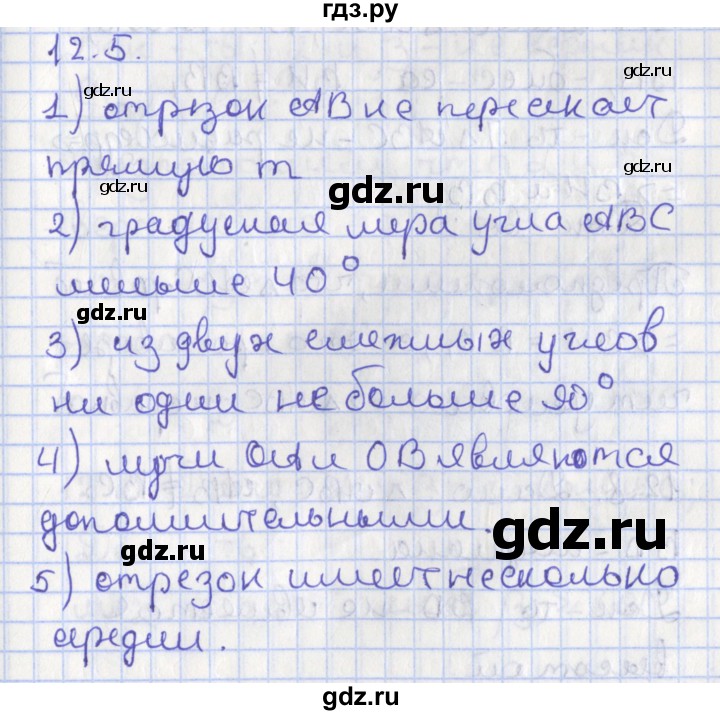 гдз.ру
12.5.
gdz.ru
gdz.ru
1) отрзок AB не пересекает
прямую m
gdz.ru
gdz.ru
gdz.ru
2) градусная мера угла ABC
меньше 40°
gdz.ru
3) из двух смежных углов
ни один не больше 90°
4) лучи OA и OB являются
дополнительными.
gdz.ru
gdz.ru
5) отрезок имеет несколько
середин.
gdz.ru